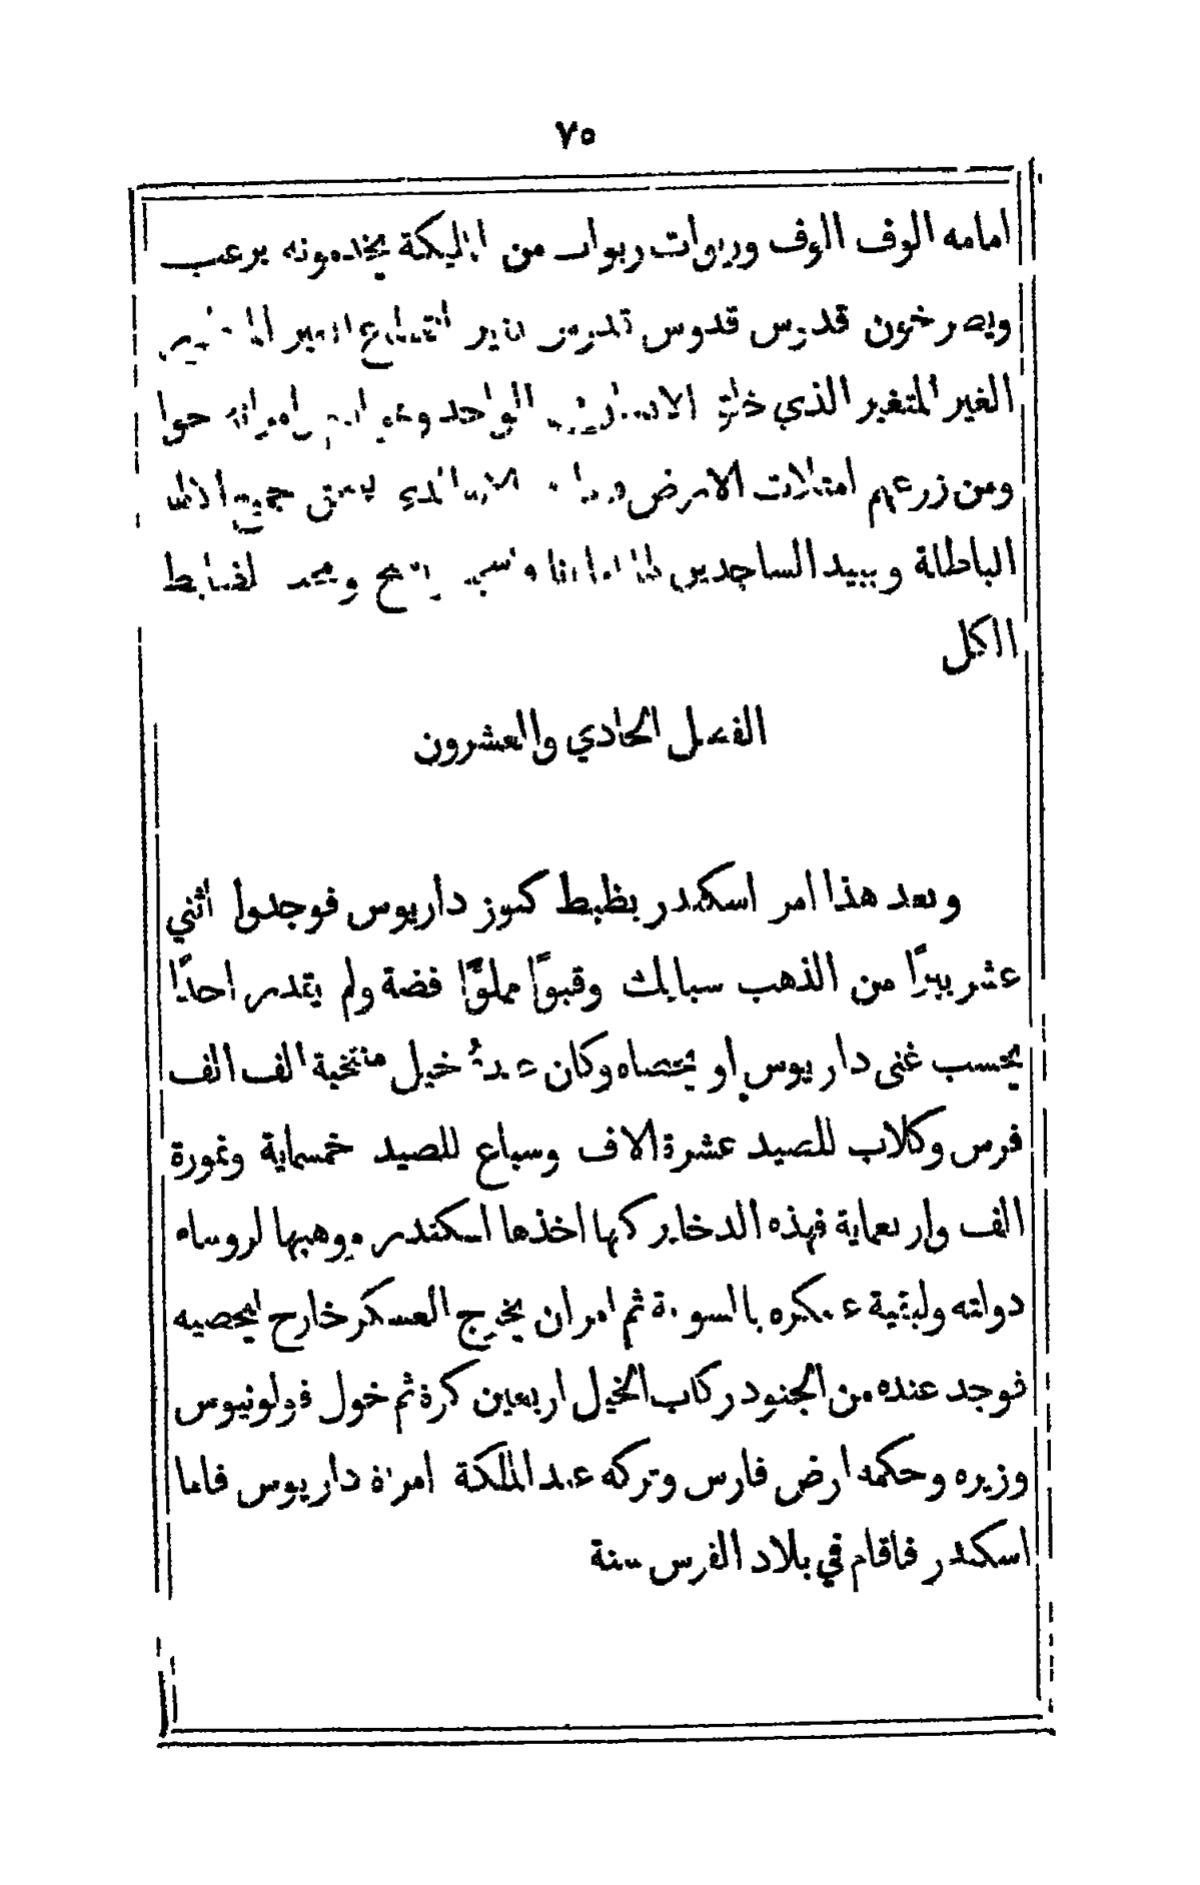 ٧٥
امامه الوف الوف وربوات ربوات من الملايكة يخدمونه برعب
ويصرخون قدوس قدوس قدوس بغير انقطاع الغير
الغير المتغير الذي خلق الانسان الواحد امراته حوا
ومن زرعهم امتلات الارض جميع الالهة
الباطلة ويبيد الساجدين لها ونسبح ونمجد لضابط
الكل
الفصل الحادي والعشرون
وبعد هذا امر اسكندر بظبط كنوز داريوس فوجدوا اثني
عشر بيرًا من الذهب سبايك وقبوًا مملوًّا فضة ولم يقدر احدًا
يحسب غنى داريوس او يحصاه وكان عدة خيل منتخبة الف الف
فرس وكلاب للصيد عشرة الاف وسباع للصيد خمسماية ونمورة
الف واربعماية فهذه الدخاير كلها اخذها اسكندر ووهبها لروساء
دولته ولبقية عسكره بالسوية ثم امر ان يخرج العسكر خارج ليحصيه
فوجد عنده من الجنود ركاب الخيل اربعين كرة ثم خول فولونيوس
وزيره وحكمه ارض فارس وتركه عند الملكة امراة داريوس فاما
اسكندر فاقام في بلاد الفرس سنة